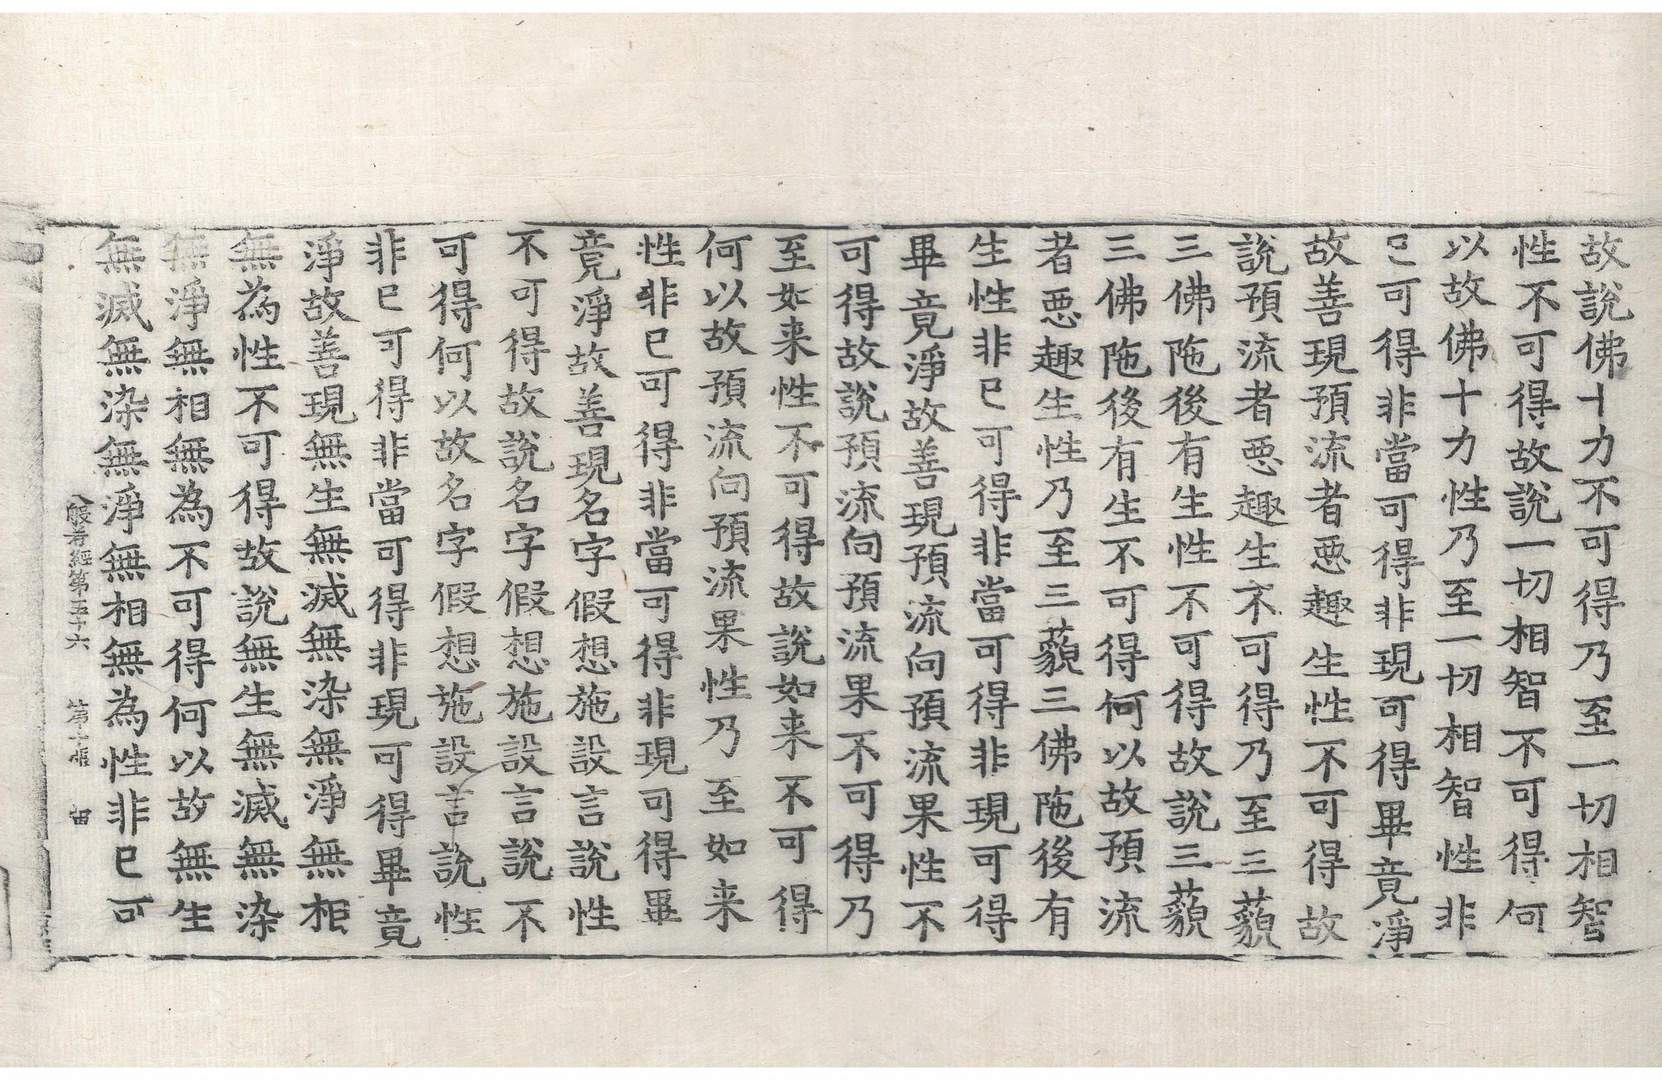 故說佛十力不可得乃至一切相智
性不可得故說一切相智不可得何
以故佛十力性乃至一切相智性非
已可得非當可得非現可得畢竟淨
故善現預流者惡趣生性不可得故
說預流者惡趣生不可得乃至三藐
三佛陁後有生性不可得故說三藐
三佛陁後有生不可得何以故預流
者惡趣生性乃至三藐三佛陁後有
生性非已可得非當可得非現可得
畢竟淨故善現預流向預流果性不
可得故說預流向預流果不可得乃
至如来性不可得故說如来不可得
何以故預流向預流果性乃至如来
性非已可得非當可得非現可得畢
竟淨故善現名字假想施設言說性
不可得故說名字假想施設言說不
可得何以故名字假想施設言說性
非已可得非當可得非現可得畢竟
淨故善現無生無滅無染無淨無相
無為性不可得故說無生無滅無染
無淨無相無為不可得何以故無生
無滅無染無淨無相無為性非已可
般若經第五十六 第張 宙